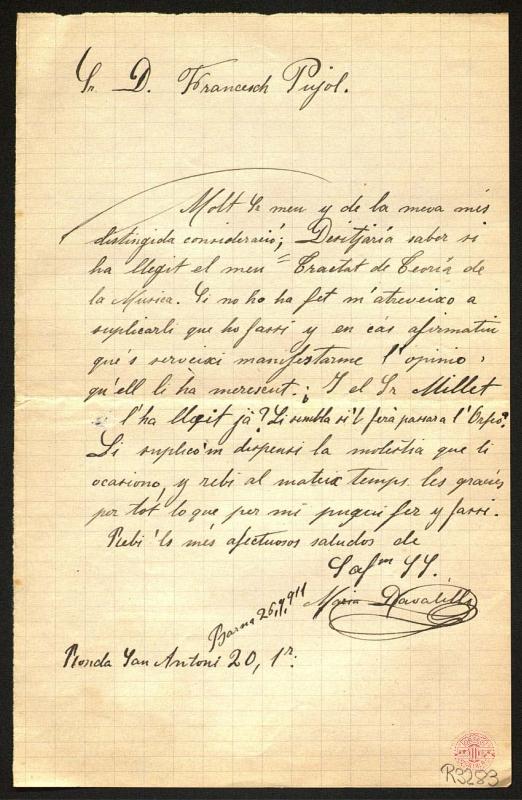 Sr. D. Francesch Pujol.
Molt Sr meu y de la meva més
distingida consideració; Desitjaría saber si
ha llegit el meu = Tractat de Teoría de
la Musica. Si no ho ha fet m'atreveixo a
suplicarli que ho fassi y en cas afirmatiu
que's serveixi manifestarme l'opinio,
qu'ell li ha merescut. ¿Y el Sr Millet
l'ha llegit jà? Li sembla si'l ferà passar a l'Orfeó?
Li suplico'm dispensi la molestia que li
ocasiono, y rebi al mateix temps les gracies
per tot lo que per mi pugui fer y fassi.
Rebi 'ls més afectuosos saludos de
S af.m SS.
Maria Davalillo
Barna 26, 9, 911
Ronda San Antoni 20, 1r.
R3283